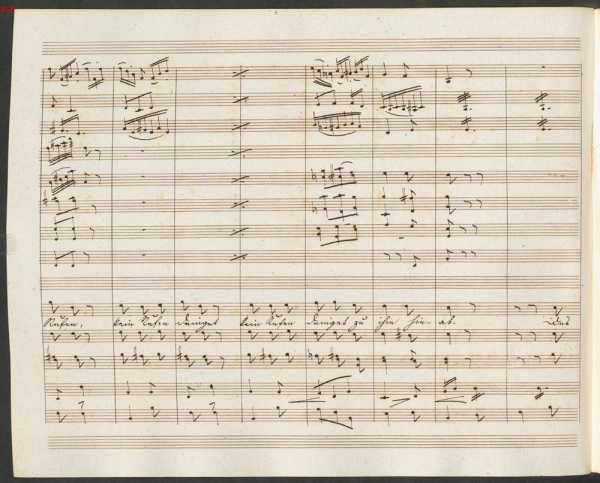 Rufen, kein Rufen dringet kein Rufen dringet zu ihm hin- ab. das